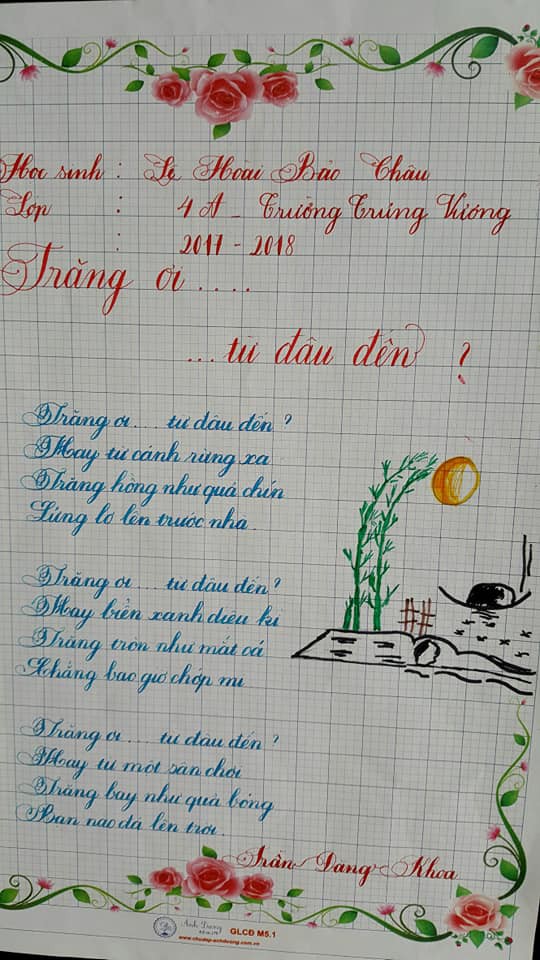 Học sinh : Lê Hoài Bảo Châu
Lớp : 4A - Trường Trưng Vương
: 2017 - 2018
Trăng ơi....
...từ đâu đến ?
Trăng ơi.... từ đâu đến ?
Hay từ cánh rừng xa
Trăng hồng như quả chín
Lửng lơ lên trước nhà.
Trăng ơi.... từ đâu đến ?
Hay biển xanh diệu kì
Trăng tròn như mắt cá
Chẳng bao giờ chớp mi
Trăng ơi.... từ đâu đến ?
Hay từ một sân chơi
Trăng bay như quả bóng
Bạn nào đá lên trời.
Trần Đăng Khoa
Ánh Dương
GLCĐ M5.1
www.chudep-anhduong.com.vn